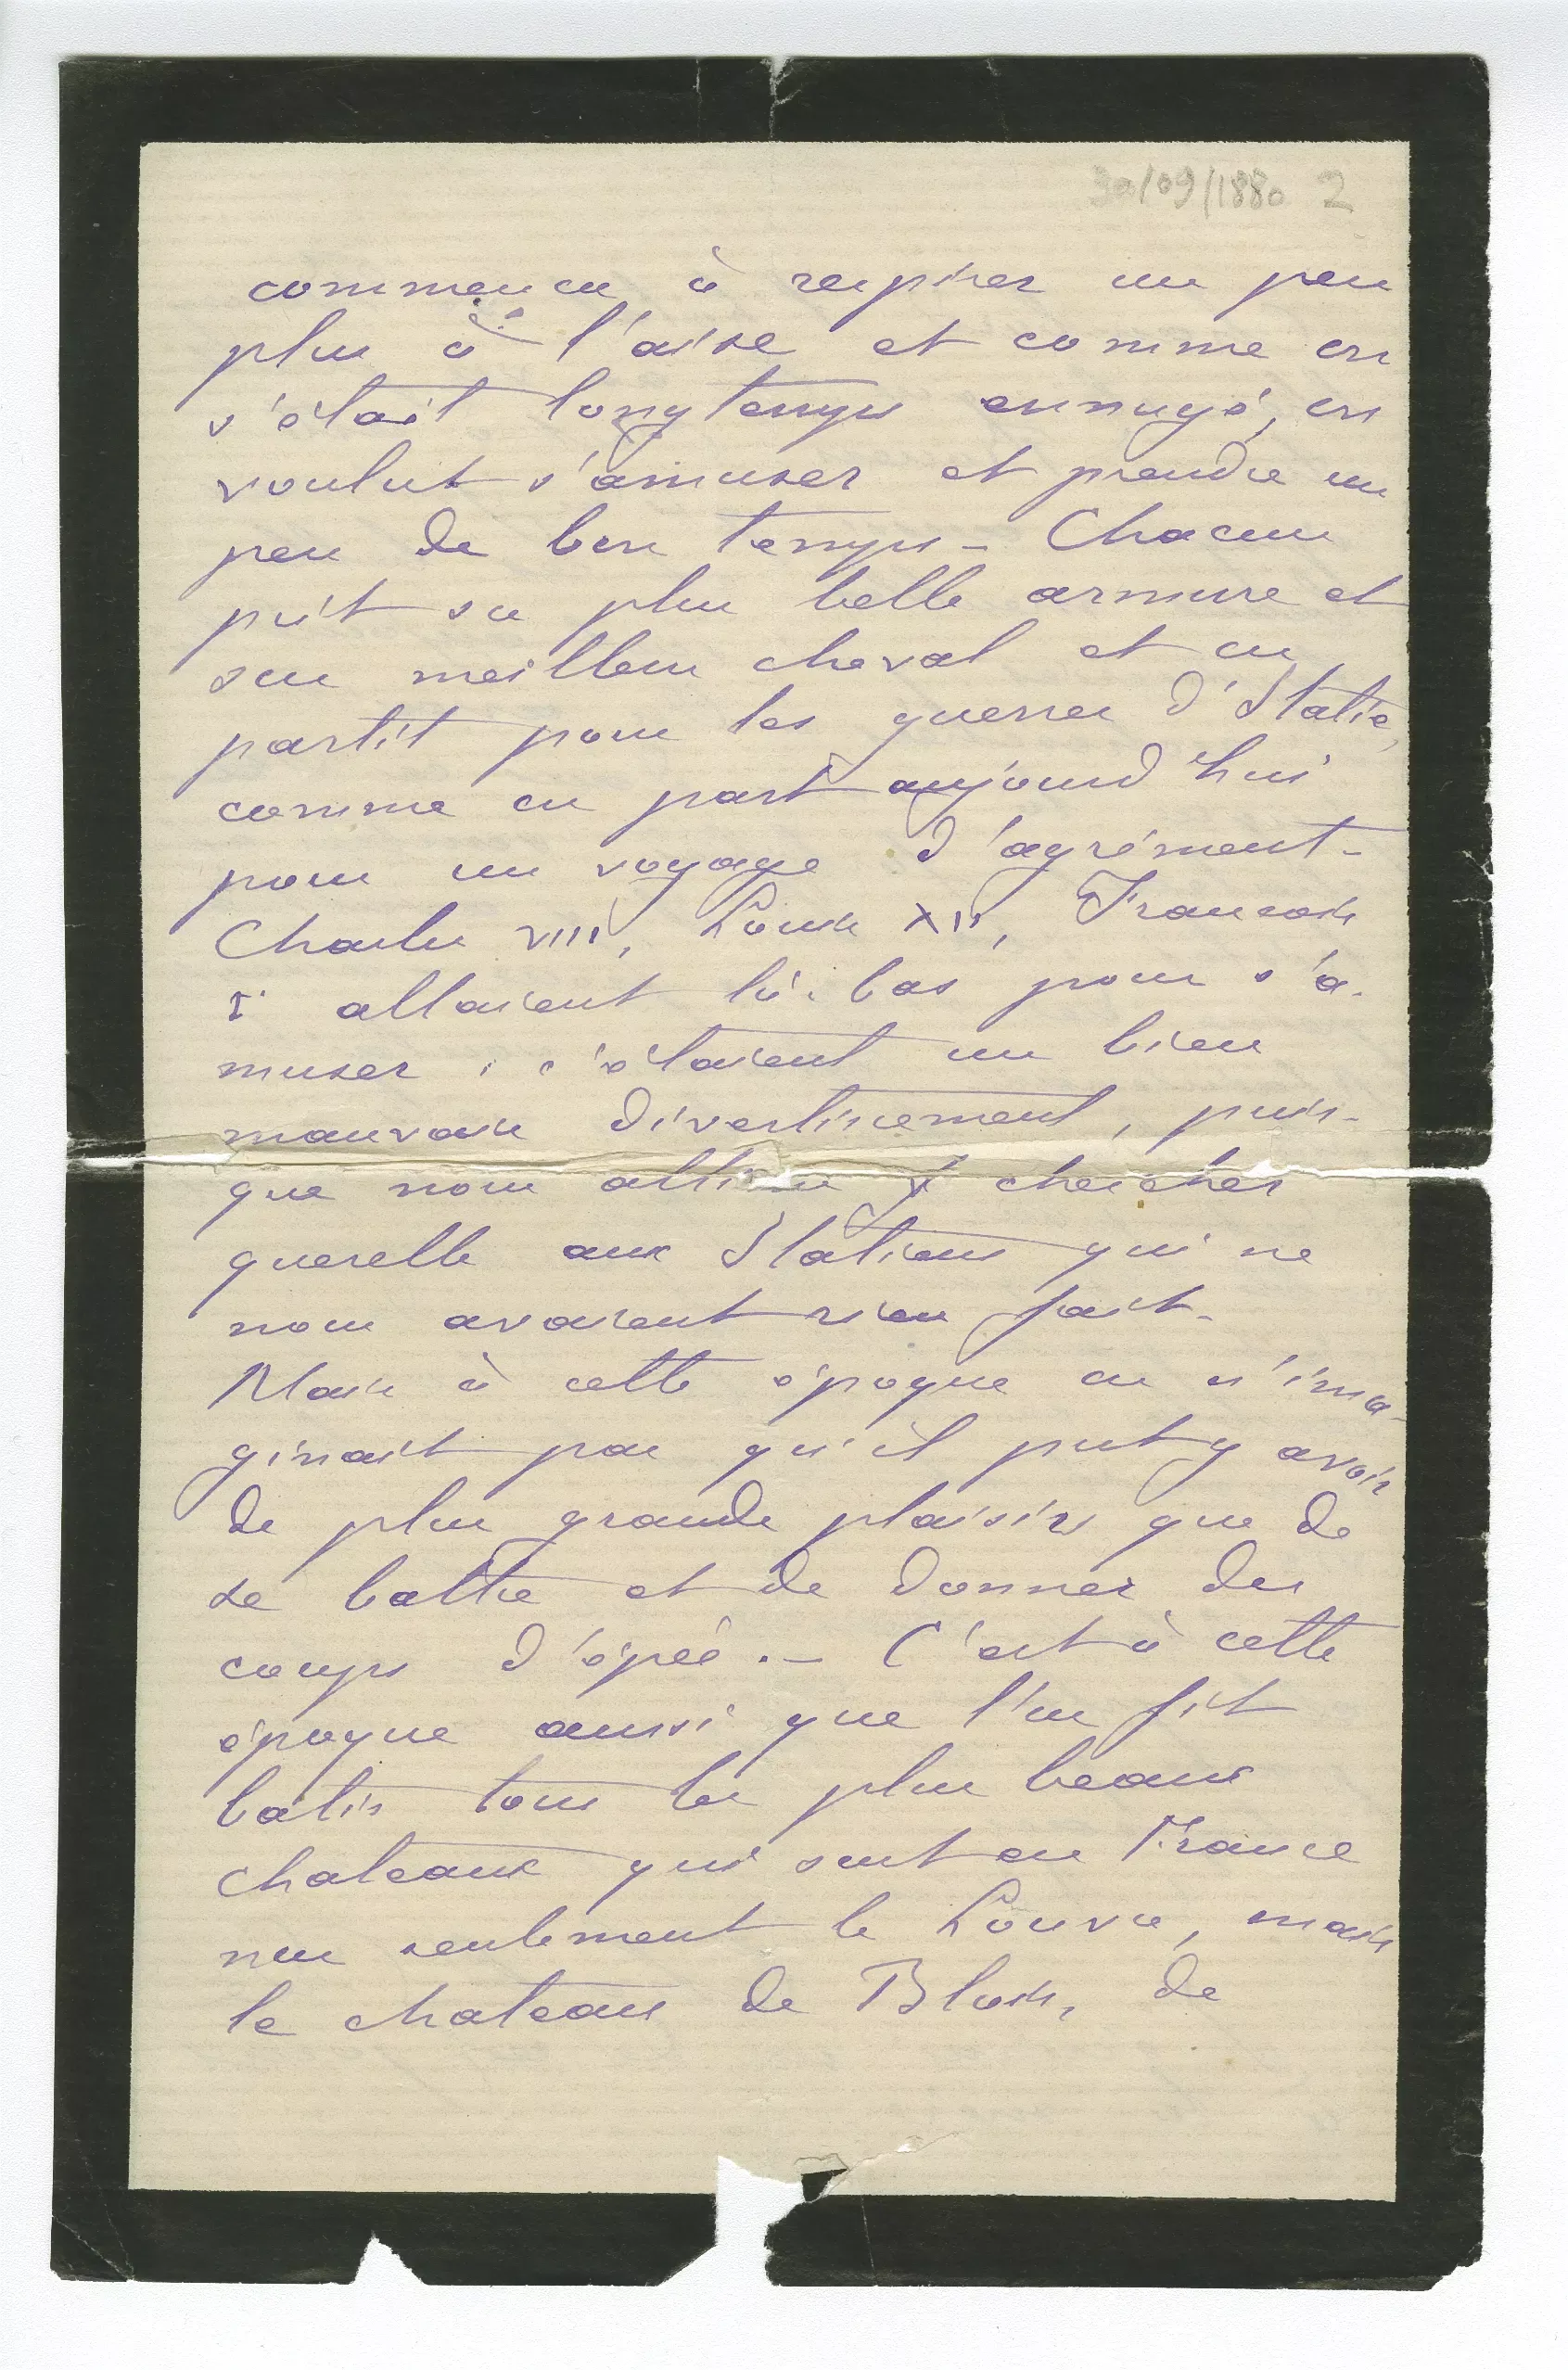 30/09/1880 2
commença à respirer un peu
plus à l'aise et comme on
s'était longtemps ennuyé, on
voulut s'amuser et prendre un
peu de bon temps - Chacun
prit sa plus belle armure et
son meilleur cheval et on
partit pour les guerres d'Italie,
comme on part aujourd'hui
pour un voyage d'agrément -
Charles VIII, Louis XII, François
I allaient là-bas pour s'a-
muser ; c'étaient un bien
mauvais divertissement, puis-
que nous allions y chercher
querelle aux Italiens qui ne
nous avaient rien fait -
Mais à cette époque on n'ima-
ginait pas qu'il put y avoir
de plus grands plaisirs que de
se battre et de donner des
coups d'épée . - C'est à cette
époque aussi que l'on fit
bâtir tous les plus beaux
chateaux qui sont en France
non seulement le Louvre, mais
le chateau de Blois, de